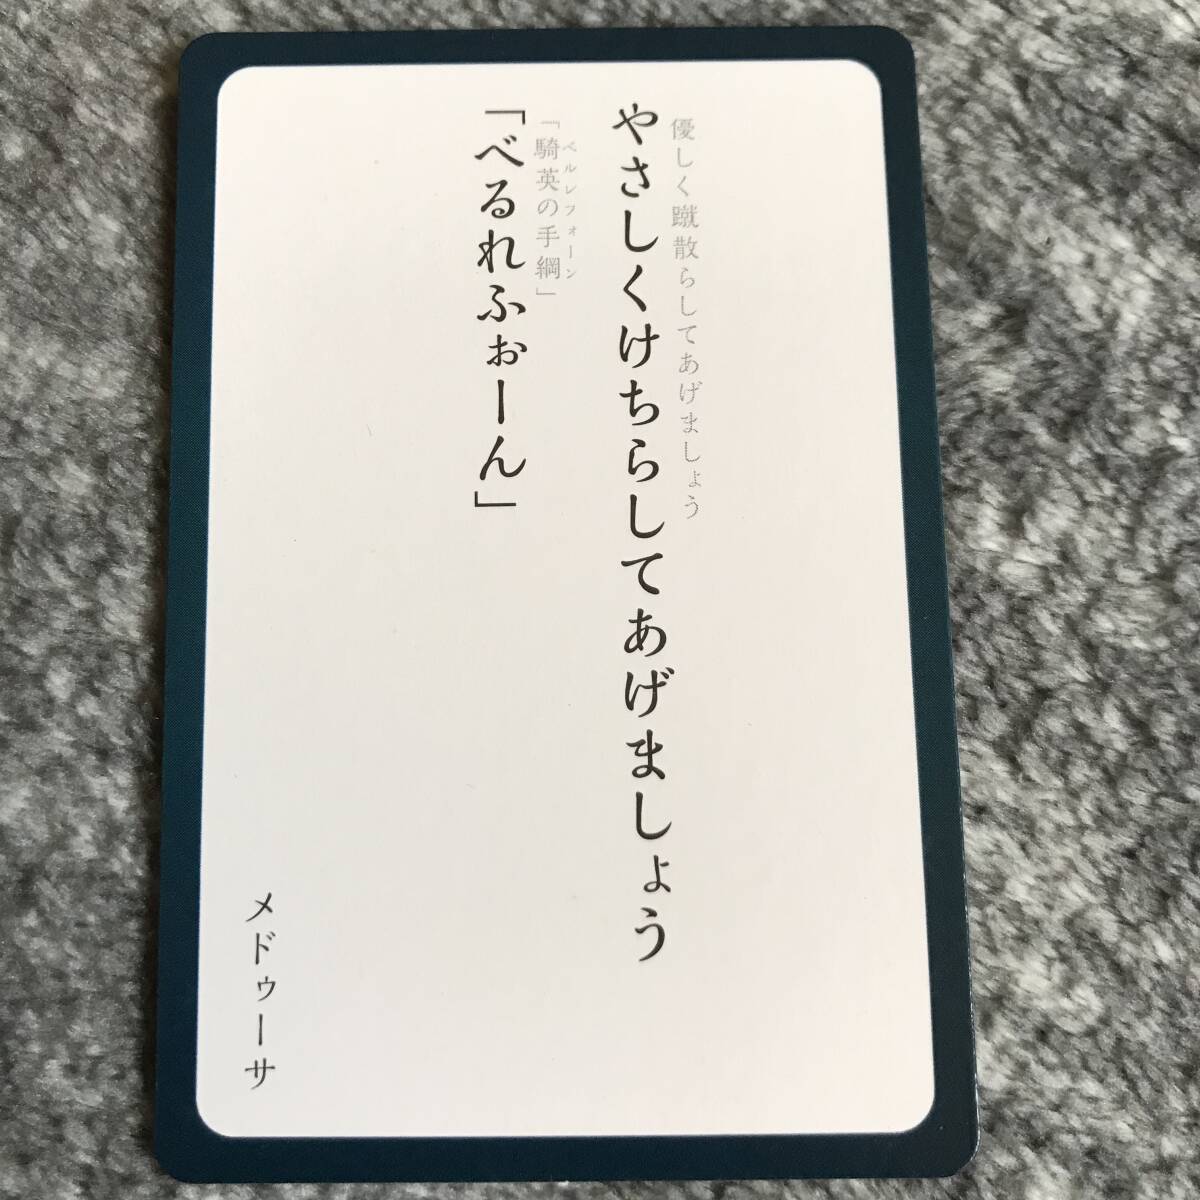 優しく蹴散らしてあげましょう
やさしくけちらしてあげましょう
ベルレフォーン
「騎英の手綱」
「べるれふぉーん」
メドゥーサ